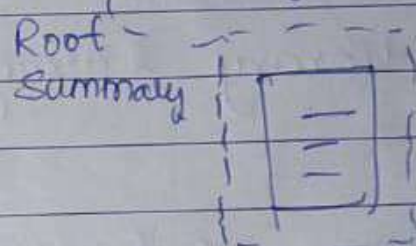 Root
Summary